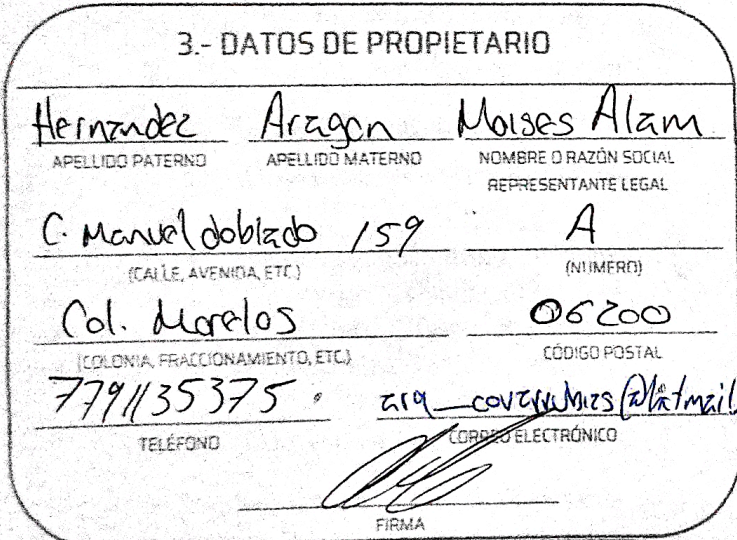 3.- DATOS DE PROPIETARIO
Hernandez Aragon Moises Alam
APELLIDO PATERNO APELLIDO MATERNO NOMBRE O RAZÓN SOCIAL
REPRESENTANTE LEGAL
C. Manuel doblado 159 A
(CALLE, AVENIDA, ETC.) (NUMERO)
Col. Morelos 06200
(COLONIA, FRACCIONAMIENTO, ETC.) CÓDIGO POSTAL
7791135375 arq_covarrubias@hotmail
TELÉFONO CORREO ELECTRÓNICO
FIRMA